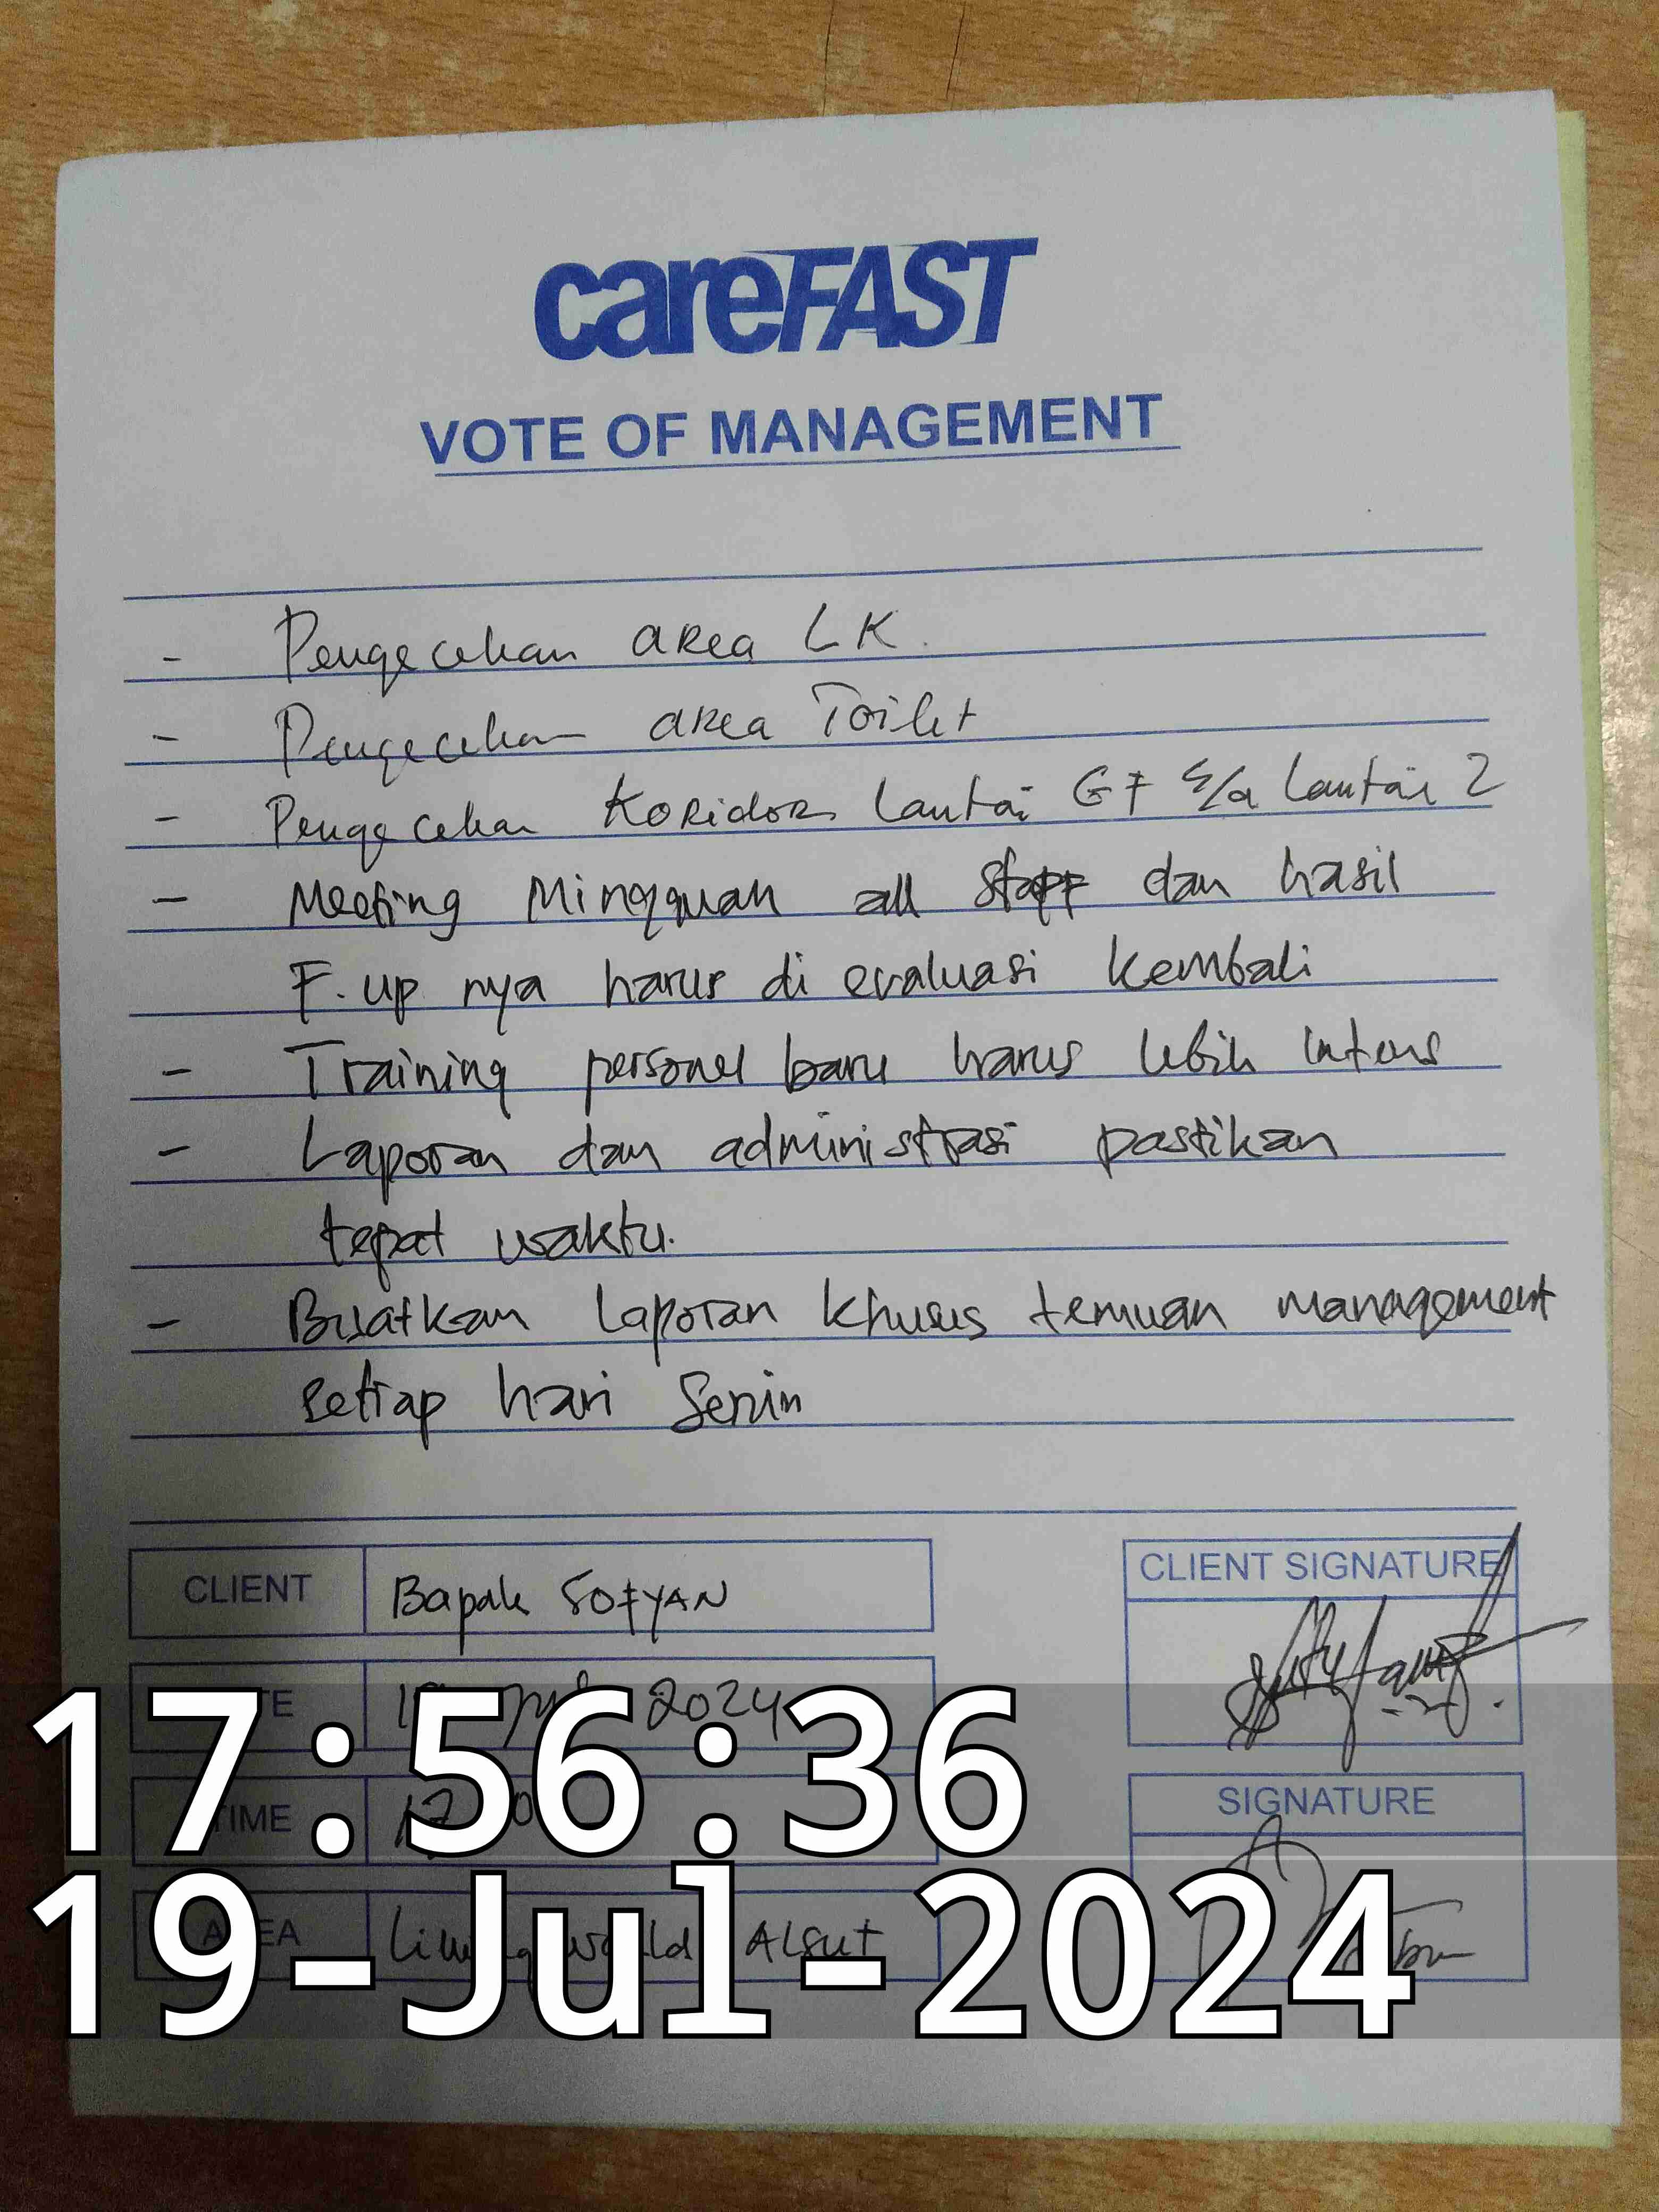 careFAST
VOTE OF MANAGEMENT
- Pengecekan area LK.
- Pengecekan area Toilet
- Pengecekan Koridor Lantai GF s/d Lantai 2
- Meeting Mingguan all staff dan hasil
F. up nya harus di evaluasi kembali
- Training personel baru harus lebih intens
- Laporan dan administrasi pastikan
tepat waktu.
- Buatkan laporan khusus temuan management
setiap hari Senin
CLIENT Bapak SOFYAN
CLIENT SIGNATURE
2024
TIME
SIGNATURE
AREA Living world Alsut
17:56:36
19-Jul-2024